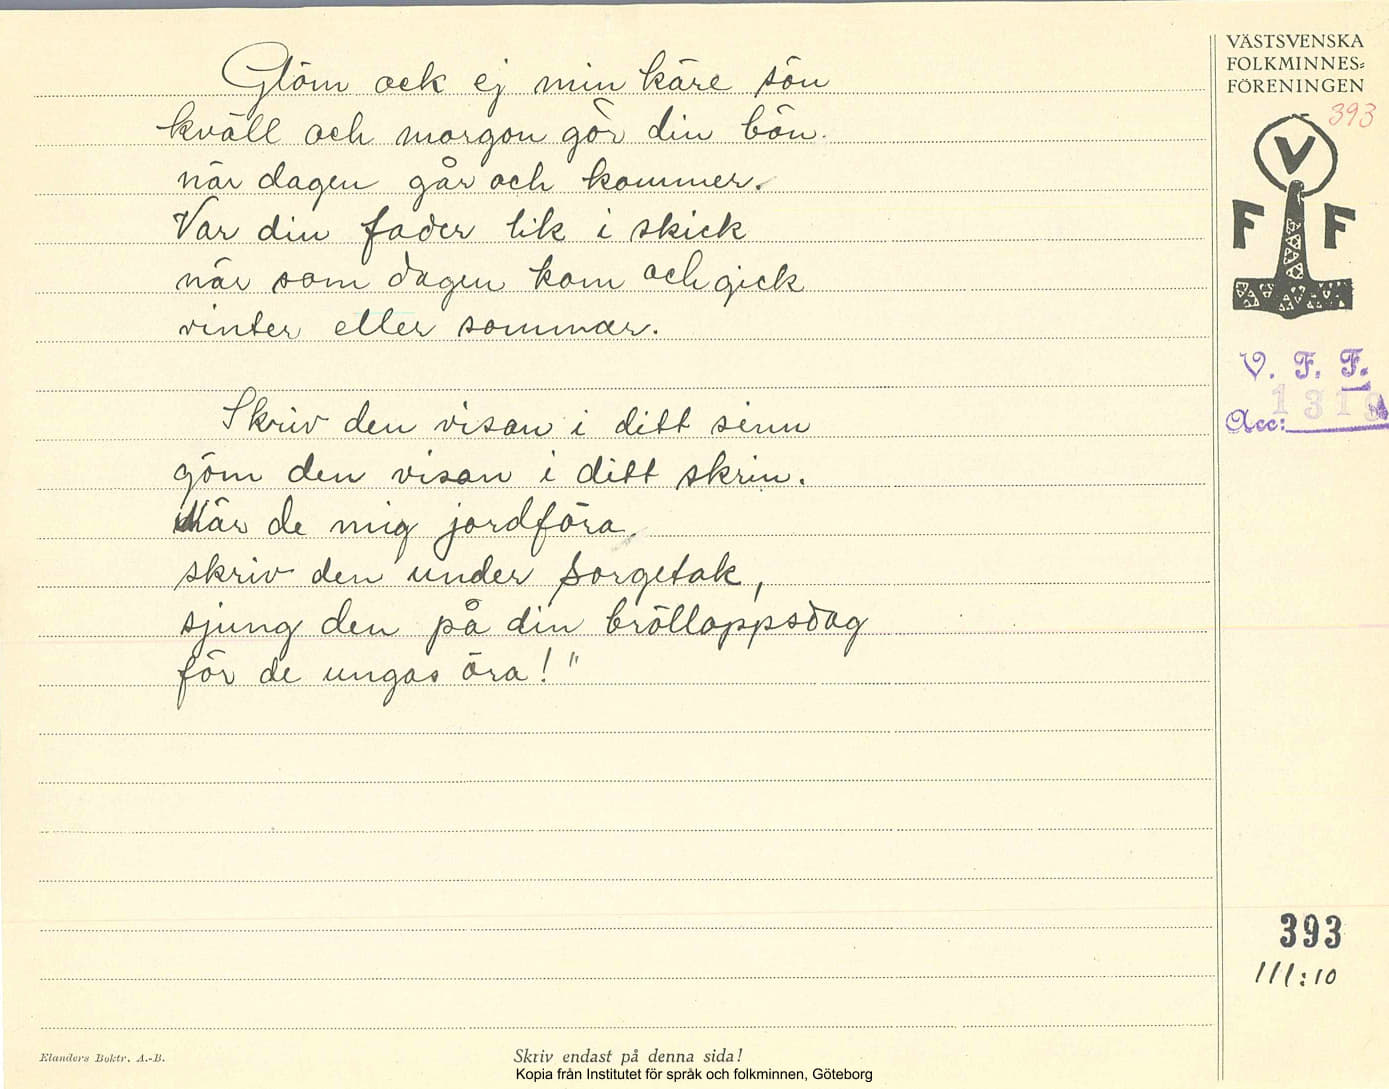 Glöm ock ej min käre sön
kväll och morgon gör din bön.
när dagen går och kommer.
Var din fader lik i skick
när som dagen kom och gick
vinter eller sommar.
Skriv den visan i ditt sinn
göm den visan i ditt skrin.
När de mig jordföra
skriv den under sorgetak,
sjung den på din brölloppsdag
för de ungas öra!"
VÄSTSVENSKA
FOLKMINNES=
FÖRENINGEN
393
V
F F
V. F. F.
Acc: 1319
393
111:10
Elanders Boktr. A.-B.
Skriv endast på denna sida!
Kopia från Institutet för språk och folkminnen, Göteborg